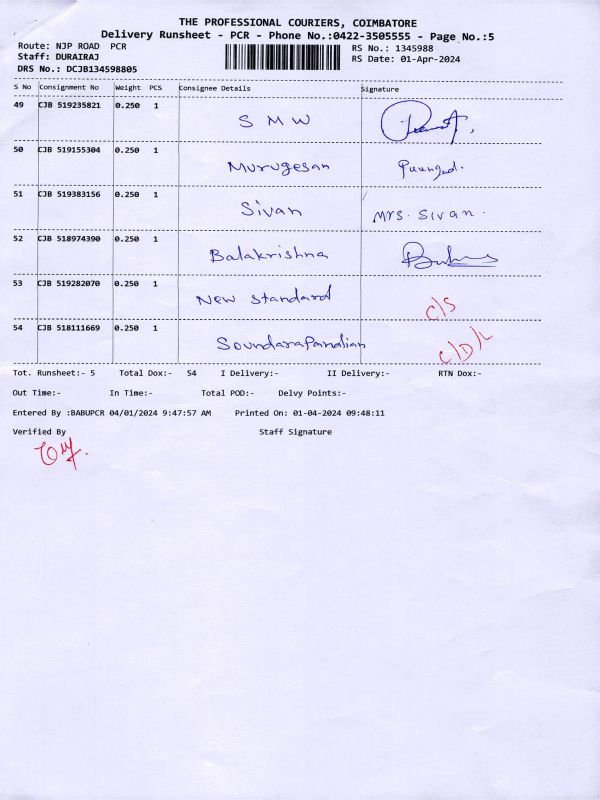 THE PROFESSIONAL COURIERS, COIMBATORE
Delivery Runsheet - PCR - Phone No.:0422-3505555 - Page No.:5
Route: NJP ROAD PCR
RS No.: 1345988
Staff: DURAIRAJ
RS Date: 01-Apr-2024
DRS No.: DCJB134598805
S No Consignment No Weight PCS Consignee Details Signature
49 CJB 519235821 0.250 1 S M W
50 CJB 519155304 0.250 1 Murugesan
51 CJB 519383156 0.250 1 Sivan Mrs. Sivan.
52 CJB 518974390 0.250 1 Balakrishna
53 CJB 519282070 0.250 1 New Standard C/S
54 CJB 518111669 0.250 1 Soundarapandian C/D/L
Tot. Runsheet:- 5 Total Dox:- 54 I Delivery:- II Delivery:- RTN Dox:-
Out Time:- In Time:- Total POD:- Delvy Points:-
Entered By :BABUPCR 04/01/2024 9:47:57 AM Printed On: 01-04-2024 09:48:11
Verified By Staff Signature